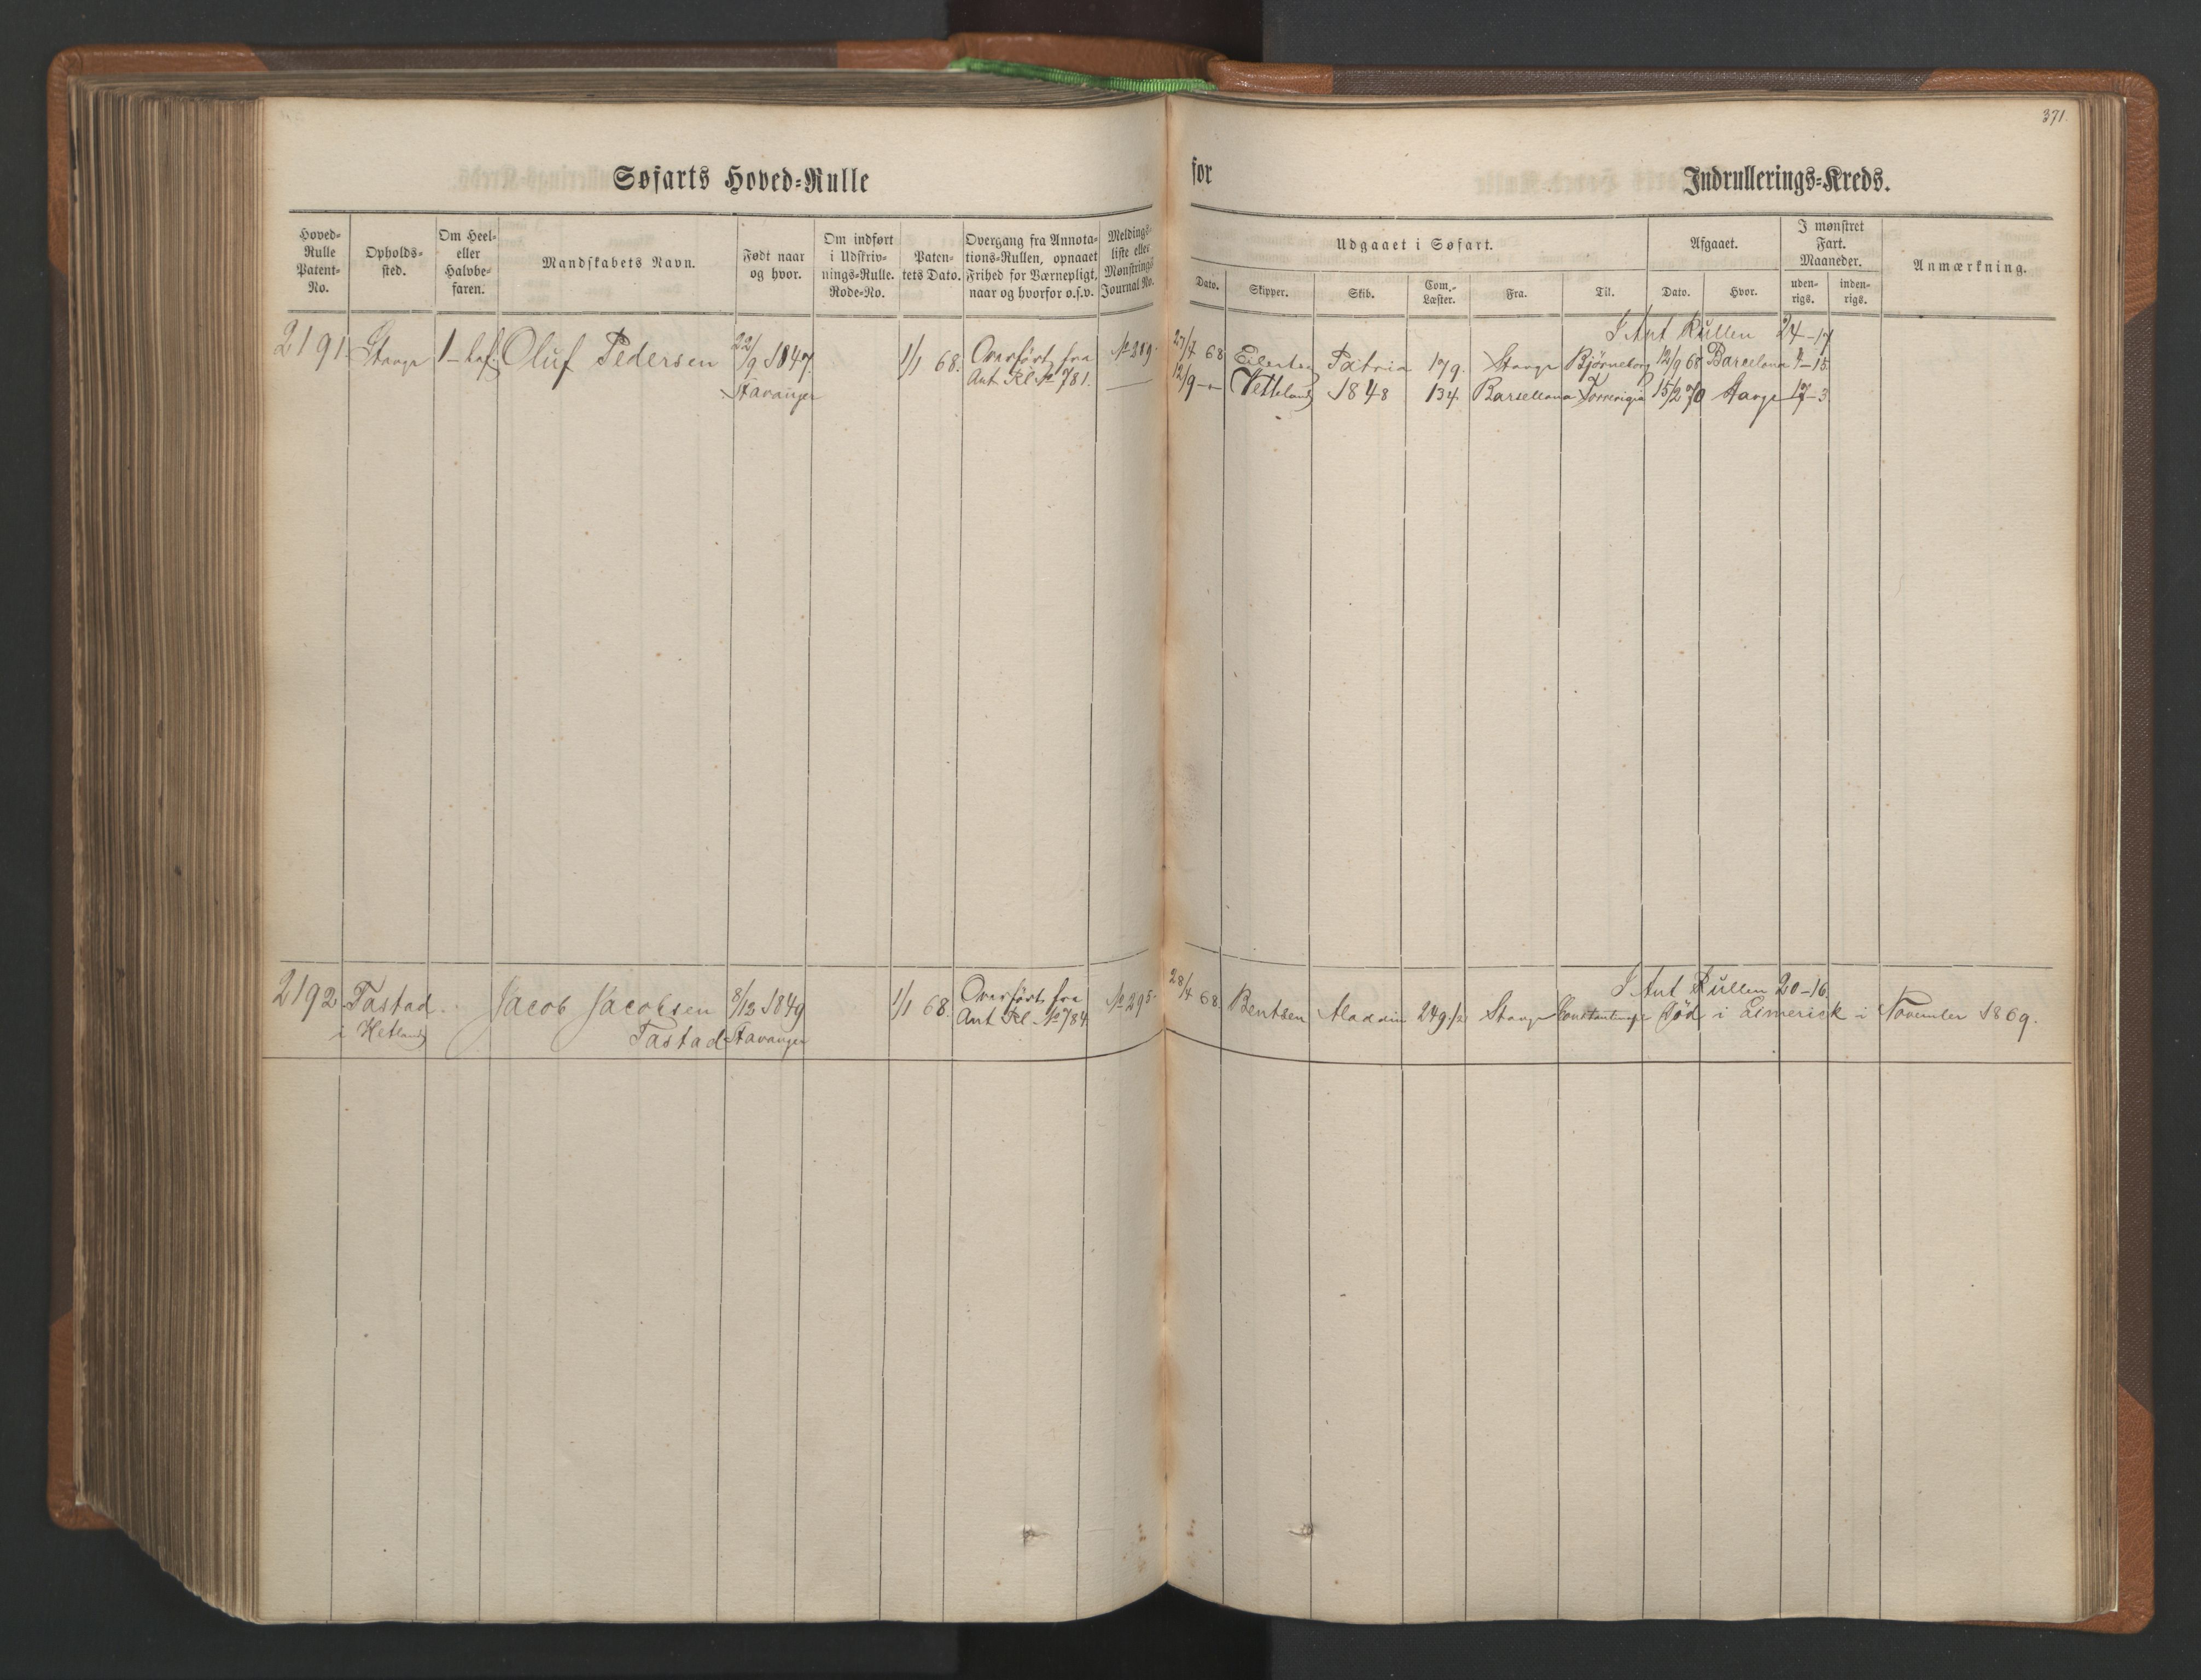 371.
Søfarts Hoved-Rulle
for
Indrullerings-Kreds.
Hoved-Rulle Patent-No.
Opholds-sted.
Om Heel- eller Halvbe-faren.
Mandskabets Navn.
Født naar og hvor.
Om indført i Udskriv-nings-Rulle. Rode-No.
Paten-tets Dato.
Overgang fra Annota-tions-Rullen, opnaaet Frihed for Værnepligt, naar og hvorfor o.s.v.
Meldings-liste eller Mønstrings Journal No.
Udgaaet i Søfart.
Afgaaet.
I mønstret Fart. Maaneder.
Anmærkning.
Dato.
Skipper.
Skib.
Com.-Læster.
Fra.
Til.
Dato.
Hvor.
uden-rigs.
inden-rigs.
I Ant Rullen 24-17
2191 Stavgr 1-haf. Oluf Pedersen 22/9 1847. 1/1 68. Overført fra № 319. 27/7 68 Eilertsen Patria 179. Stavgr Bjørneborg 12/9 68 Barcelona 4-15
Stavanger Ant Rl № 781. 12/9 - Vetteland 1848 134. Barsellona Torrevigia 15/2 70 Stavgr 17-3
I Ant Rullen 20-16
2192 Tastad Jacob Jacobsen 8/12 1849 1/1 68. Overført fra № 295. 28/4 68 Bentsen Aladdin 249 1/2 Stavgr Constantinopl Død i Limerick i November 1869.
i Hetland Tastad Stavanger Ant Rl № 784